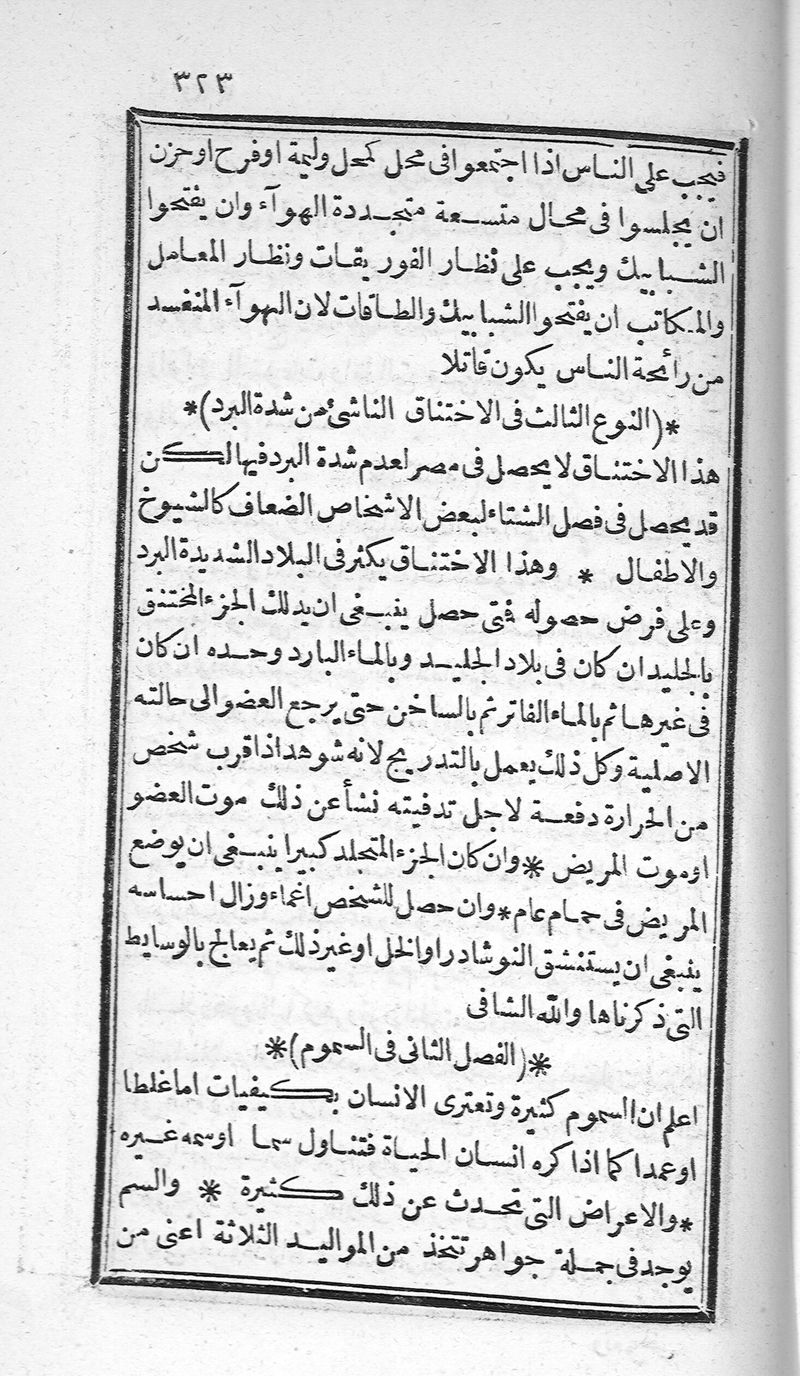 ٣٢٣
فيجب على الناس اذا اجتمعوا فى محل كمحل وليمة او فرح او حزن
ان يجلسوا فى محال متسعة متجددة الهوآء وان يفتحوا
الشبابيك ويجب على نظار الفوريقات ونظار المعامل
والمكاتب ان يفتحوا الشبابيك والطاقات لان الهوآء المنفسد
من رائحة الناس يكون قاتلا
*(النوع الثالث فى الاختناق الناشئ من شدة البرد)*
هذا الاختناق لا يحصل فى مصر لعدم شدة البرد فيها لكن
قد يحصل فى فصل الشتاء لبعض الاشخاص الضعاف كالشيوخ
والاطفال * وهذا الاختناق يكثر فى البلاد الشديدة البرد
وعلى فرض حصوله فتى حصل ينبغى ان يدلك الجزء المختنق
بالجليد ان كان فى بلاد الجليد وبالماء البارد وحده ان كان
فى غيرها ثم بالماء الفاتر ثم بالساخن حتى يرجع العضو الى حالته
الاصلية وكل ذلك يعمل بالتدريج لانه شوهد اذا قرب شخص
من الحرارة دفعة لاجل تدفيته نشأ عن ذلك موت العضو
او موت المريض * وان كان الجزء المتجلد كبيرا ينبغى ان يوضع
المريض فى حمام عام * وان حصل للشخص اغماء وزال احساسه
ينبغى ان يستنشق النوشادر او الخل او غير ذلك ثم يعالج بالوسايط
التى ذكرناها والله الشافى
*(الفصل الثانى فى السموم)*
اعلم ان السموم كثيرة وتعترى الانسان بكيفيات اما غلطا
او عمدا كما اذا كره انسان الحياة فتناول سما او سمه غيره
* والاعراض التى تحدث عن ذلك كثيرة * والسم
يوجد فى جملة جواهر تتخذ من المواليد الثلاثة اعنى من